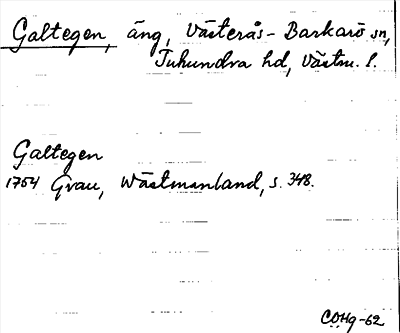 Galtegen, äng, Västerås-Barkarö sn,
Tuhundra hd, Västm. l.
Galtegen
1754 Grau, Wästmanland, s. 348.
COHg-62